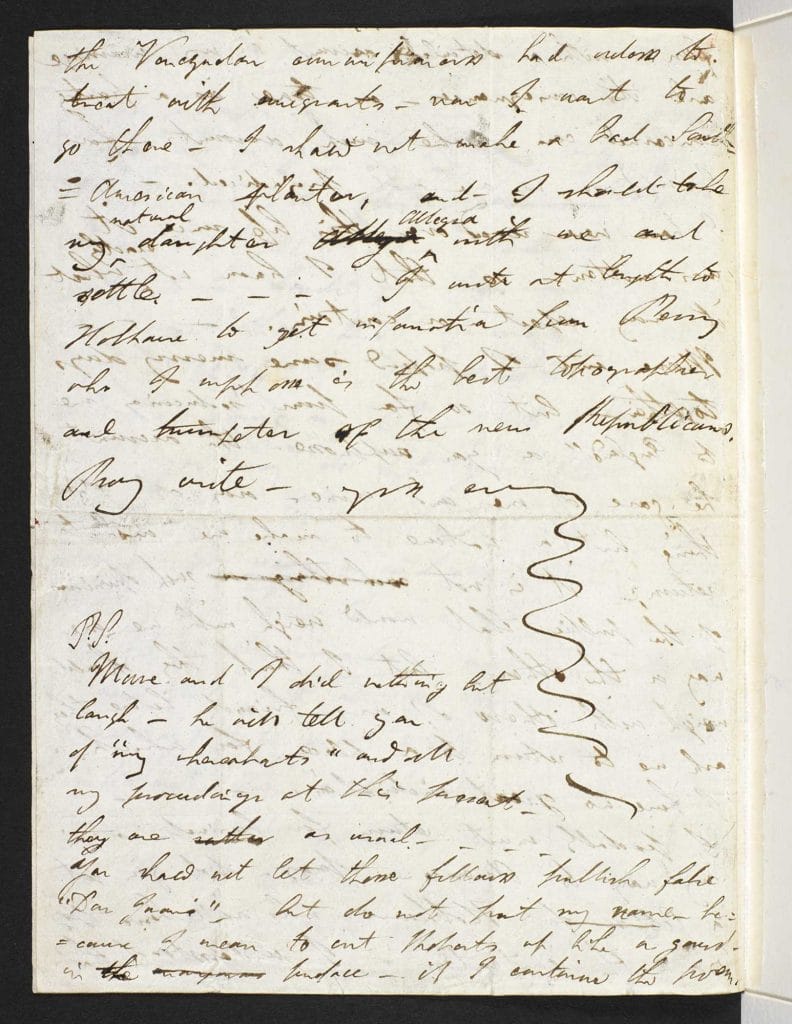 the Venezuelan commissioners had orders to
treat with emigrants – now I want to
go there – I should not make a bad South
= American planter, and I should take
natural Allegra
my daughter Allegra with me and
settle. – – – I wrote at length to
Hobhouse to get information from Perry
who I suppose is the best topographer
and trumpeter of the new Republicans.
Pray write – yrs ever
P.S.
Moore and I did nothing but
laugh – he will tell you
of "my whereabouts" and all
my proceedings at this present –
they are as usual. – – –
You should not let those fellows publish false
"Don Juans" – but do not put my name – be=
=cause I mean to cut Roberts up like a gourd –
in the preface – if I continue the poem.